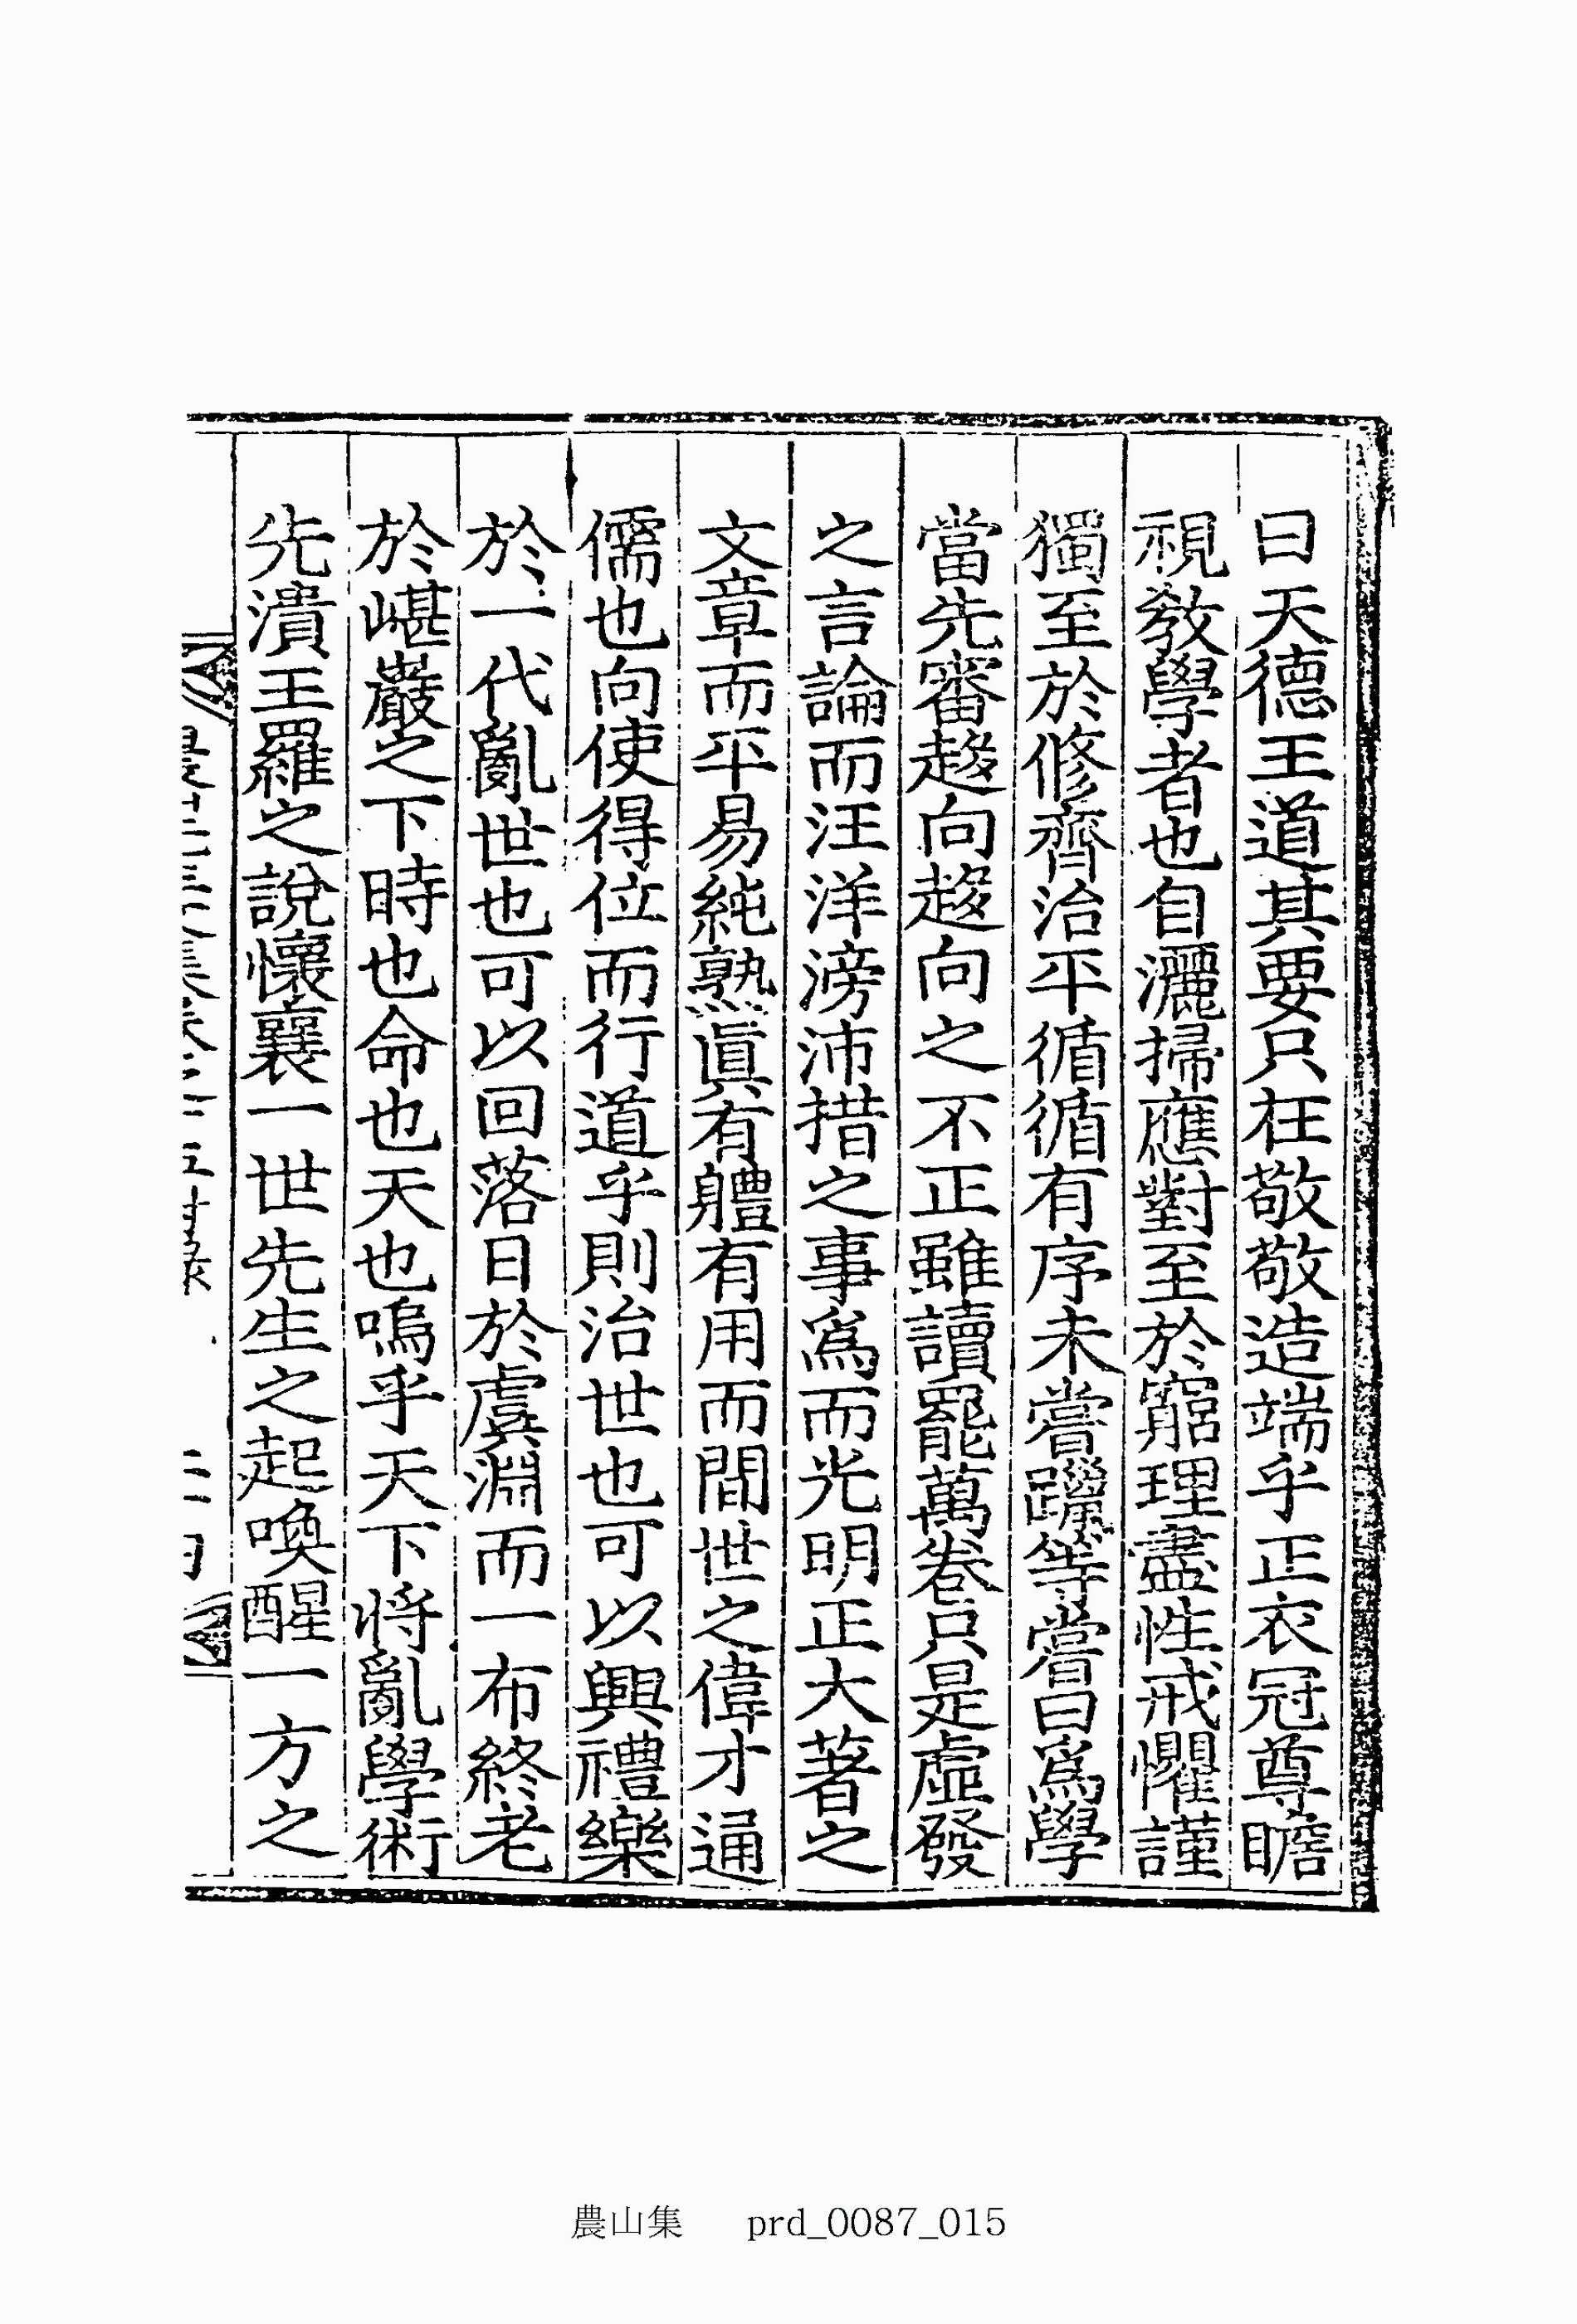 曰天德王道其要只在敬敬造端乎正衣冠尊瞻
視敎學者也自灑掃應對至於窮理盡性戒懼謹
獨至於修齊治平循循有序未嘗躐等嘗曰爲學
當先審趍向趍向之不正雖讀罷萬卷只是虛發
之言論而汪洋滂沛措之事爲而光明正大著之
文章而平易純熟眞有軆有用而間世之偉才通
儒也向使得位而行道乎則治世也可以興禮樂
於一代亂世也可以回落日於虞淵而一布終老
於嵁巖之下時也命也天也嗚乎天下將亂學術
先潰王羅之說懷襄一世先生之起喚醒一方之
農山集 prd_0087_015